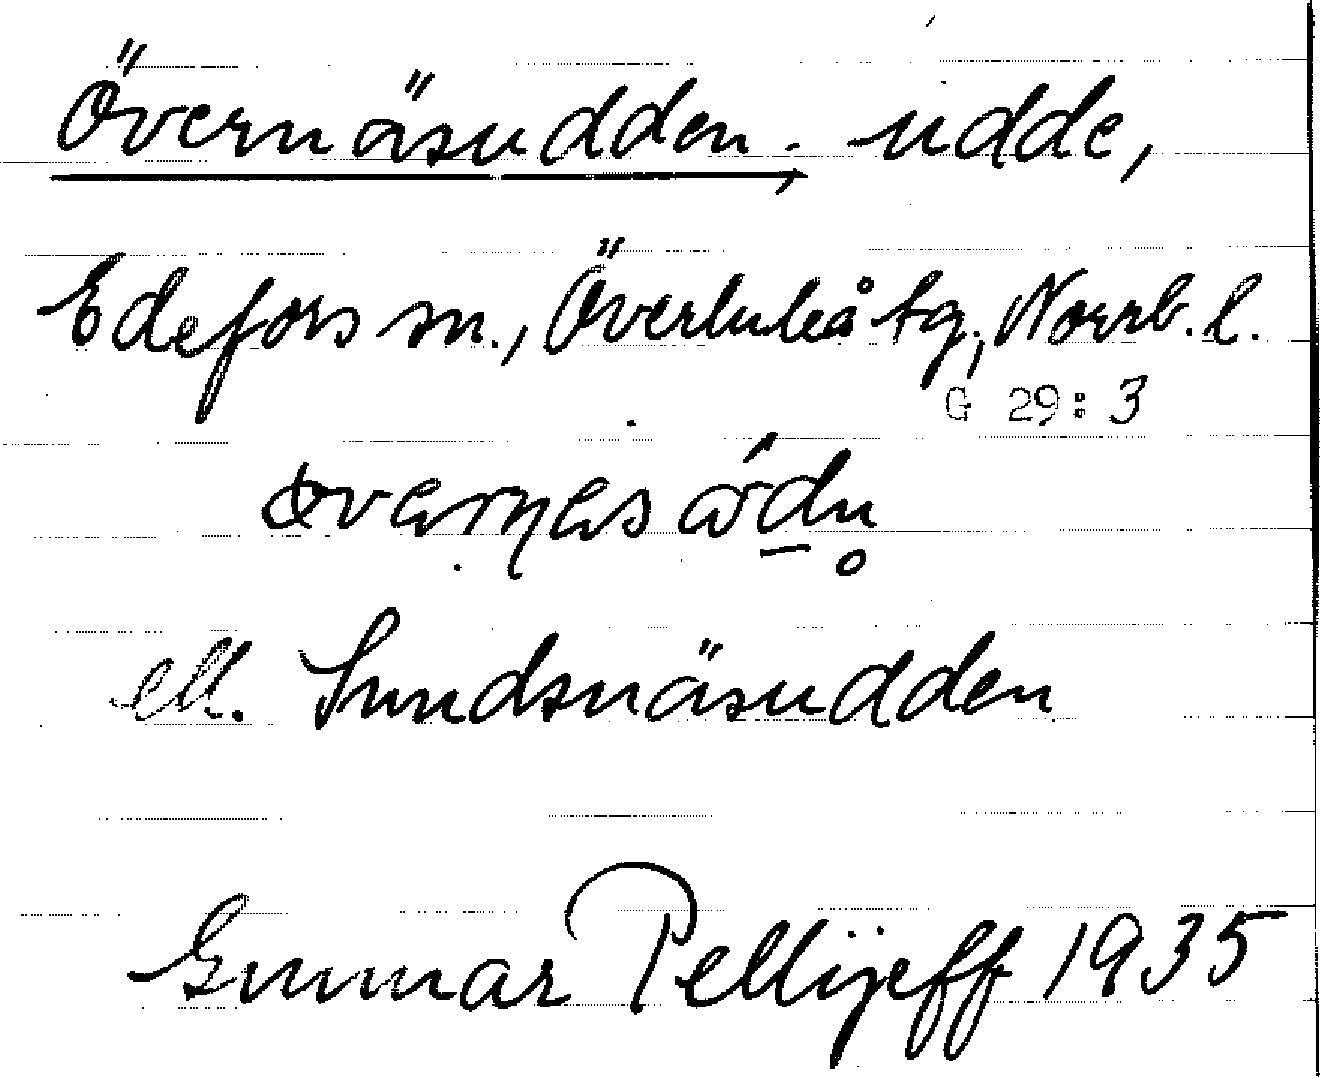 Övernäsudden, udde,
Edefors sn., Överluleå tg., Norrb. l.
G 29:3
ell. Sundsnäsudden
Gunnar Pellijeff 1935